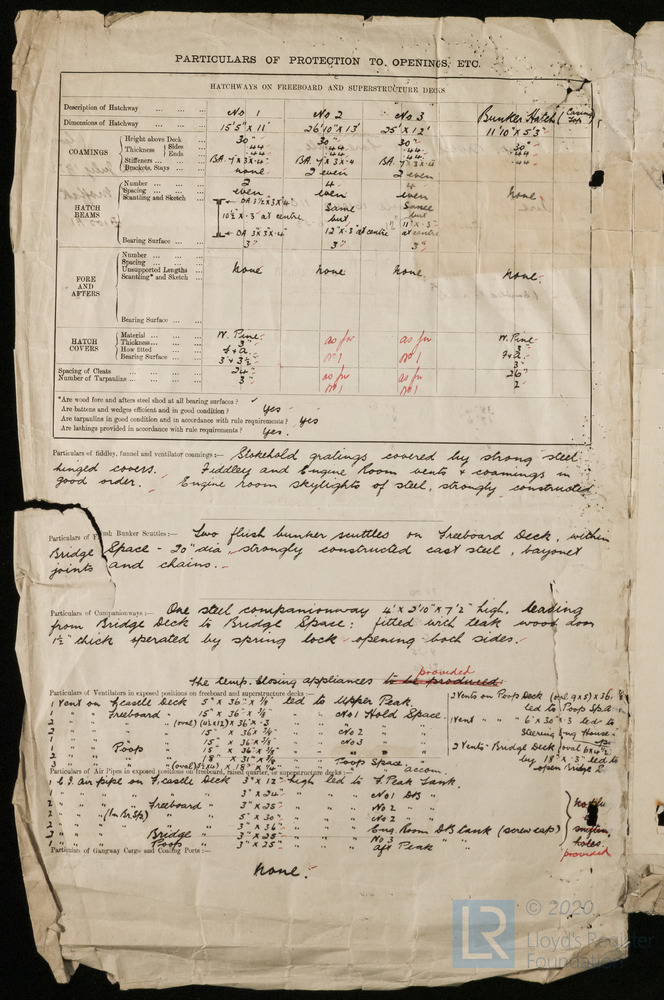 PARTICULARS OF PROTECTION TO OPENINGS, ETC.
HATCHWAYS ON FREEBOARD AND SUPERSTRUCTURE DECKS
Description of Hatchway ... ... ... No 1 No 2 No 3 Bunker Hatch (Casing Top
Dimensions of Hatchway ... ... ... 15'5" x 11' 26'10" x 13' 25' x 12' 11'10" x 5'3"
COAMINGS
Height above Deck ... 30" 30" 30" 30"
Thickness { Sides ... .44 .44 .44 .44
Ends ... .44 .44 .44 .44
Stiffeners ... ... ... BA. 7 x 3 x .4 BA. 7 x 3 x .4 BA. 7 x 3 x .4
Brackets, Stays ... none 2 even 2 even
HATCH BEAMS
Number ... ... ... 2 4 4 none
Spacing ... ... ... even even even
Scantling and Sketch ... DA 3½ x 3 x .4 Same Same
10½ x .3" at centre but but
DA 3 x 3 x .4" 12" x .3" at centre 11" x .3" at centre
Bearing Surface ... ... 3" 3" 3"
FORE AND AFTERS
Number ... ... ...
Spacing ... ... ...
Unsupported Lengths ... none none none none
Scantling* and Sketch ...
Bearing Surface ... ...
HATCH COVERS
Material ... ... ... W. Pine as per as per W. Pine
Thickness ... ... ... 3" No 1 No 1 3"
How fitted ... ... F & A F & A
Bearing Surface ... ... 3 & 3½ 3"
Spacing of Cleats ... ... ... 24" as per as per 26"
Number of Tarpaulins ... ... ... 3 No 1 No 1 2
*Are wood fore and afters steel shod at all bearing surfaces?
Are battens and wedges efficient and in good condition? yes
Are tarpaulins in good condition and in accordance with rule requirements? yes
Are lashings provided in accordance with rule requirements? yes.
Particulars of fiddley, funnel and ventilator coamings:— Stokehold gratings covered by strong steel
hinged covers. Fiddley and Engine Room vents & coamings in
good order. Engine room skylights of steel, strongly constructed
Particulars of Flush Bunker Scuttles:— Two flush bunker scuttles on Freeboard Deck, within
Bridge Space - 20" dia, strongly constructed cast steel, bayonet
joints and chains.
Particulars of Companionways:— One steel companionway 4' x 2'10" x 7'2" high, leading
from Bridge Deck to Bridge Space: fitted with teak wood door
1½" thick operated by spring lock opening both sides.
provided
the temp. closing appliances to be produced
Particulars of Ventilators in exposed positions on freeboard and superstructure decks:—
1 Vent on F'castle Deck 5" x 36" x ⅜ led to Upper Peak. 2 Vents on Poop Deck (oval 9x5) x 36
led to Poop Space
" " Freeboard " 15" x 36" x ⅜" " " No 1 Hold Space. 1 Vent " " 6" x 30" x .3 led to
" " " " (oval) x 36" x .3 " " Steering Eng House
" " " " 15" x 36 x ⅜ " " No 2 " "
" " " " 15" x 36 x ⅜ " " No 3 " " 2 Vents Bridge Deck (oval 6x4½
" " Poop " 15" x 36 x ⅜ " " " " " by 18" x .3" led to
" " " " 18" x 31" x ⅜ " " Poop Space open Bridge
" " " " (oval) x 18" x " " " accom.
Particulars of Air Pipes in exposed positions on freeboard, raised quarter, or superstructure decks:—
1 C.I. air pipe on F'castle Deck 3" x 12" high led to F. Peak Tank.
" " " " " 3" x 24" " " No 1 DB "
" " " Freeboard " 3" x 25" " " No 2 " "
" " " (In Br. Sp) " 5" x 30" " " No 2 " "
2 " " " " 3" x 36" " " Eng Room DB tank (screw cap)
" " " Bridge " 3" x 25" " " No 3 "
1 " " " Poop " 3" x 25" " " aft Peak "
holes
provided
Particulars of Gangway Cargo and Coaling Ports:—
none.
© 2020
LR
Lloyd's Register
Foundation